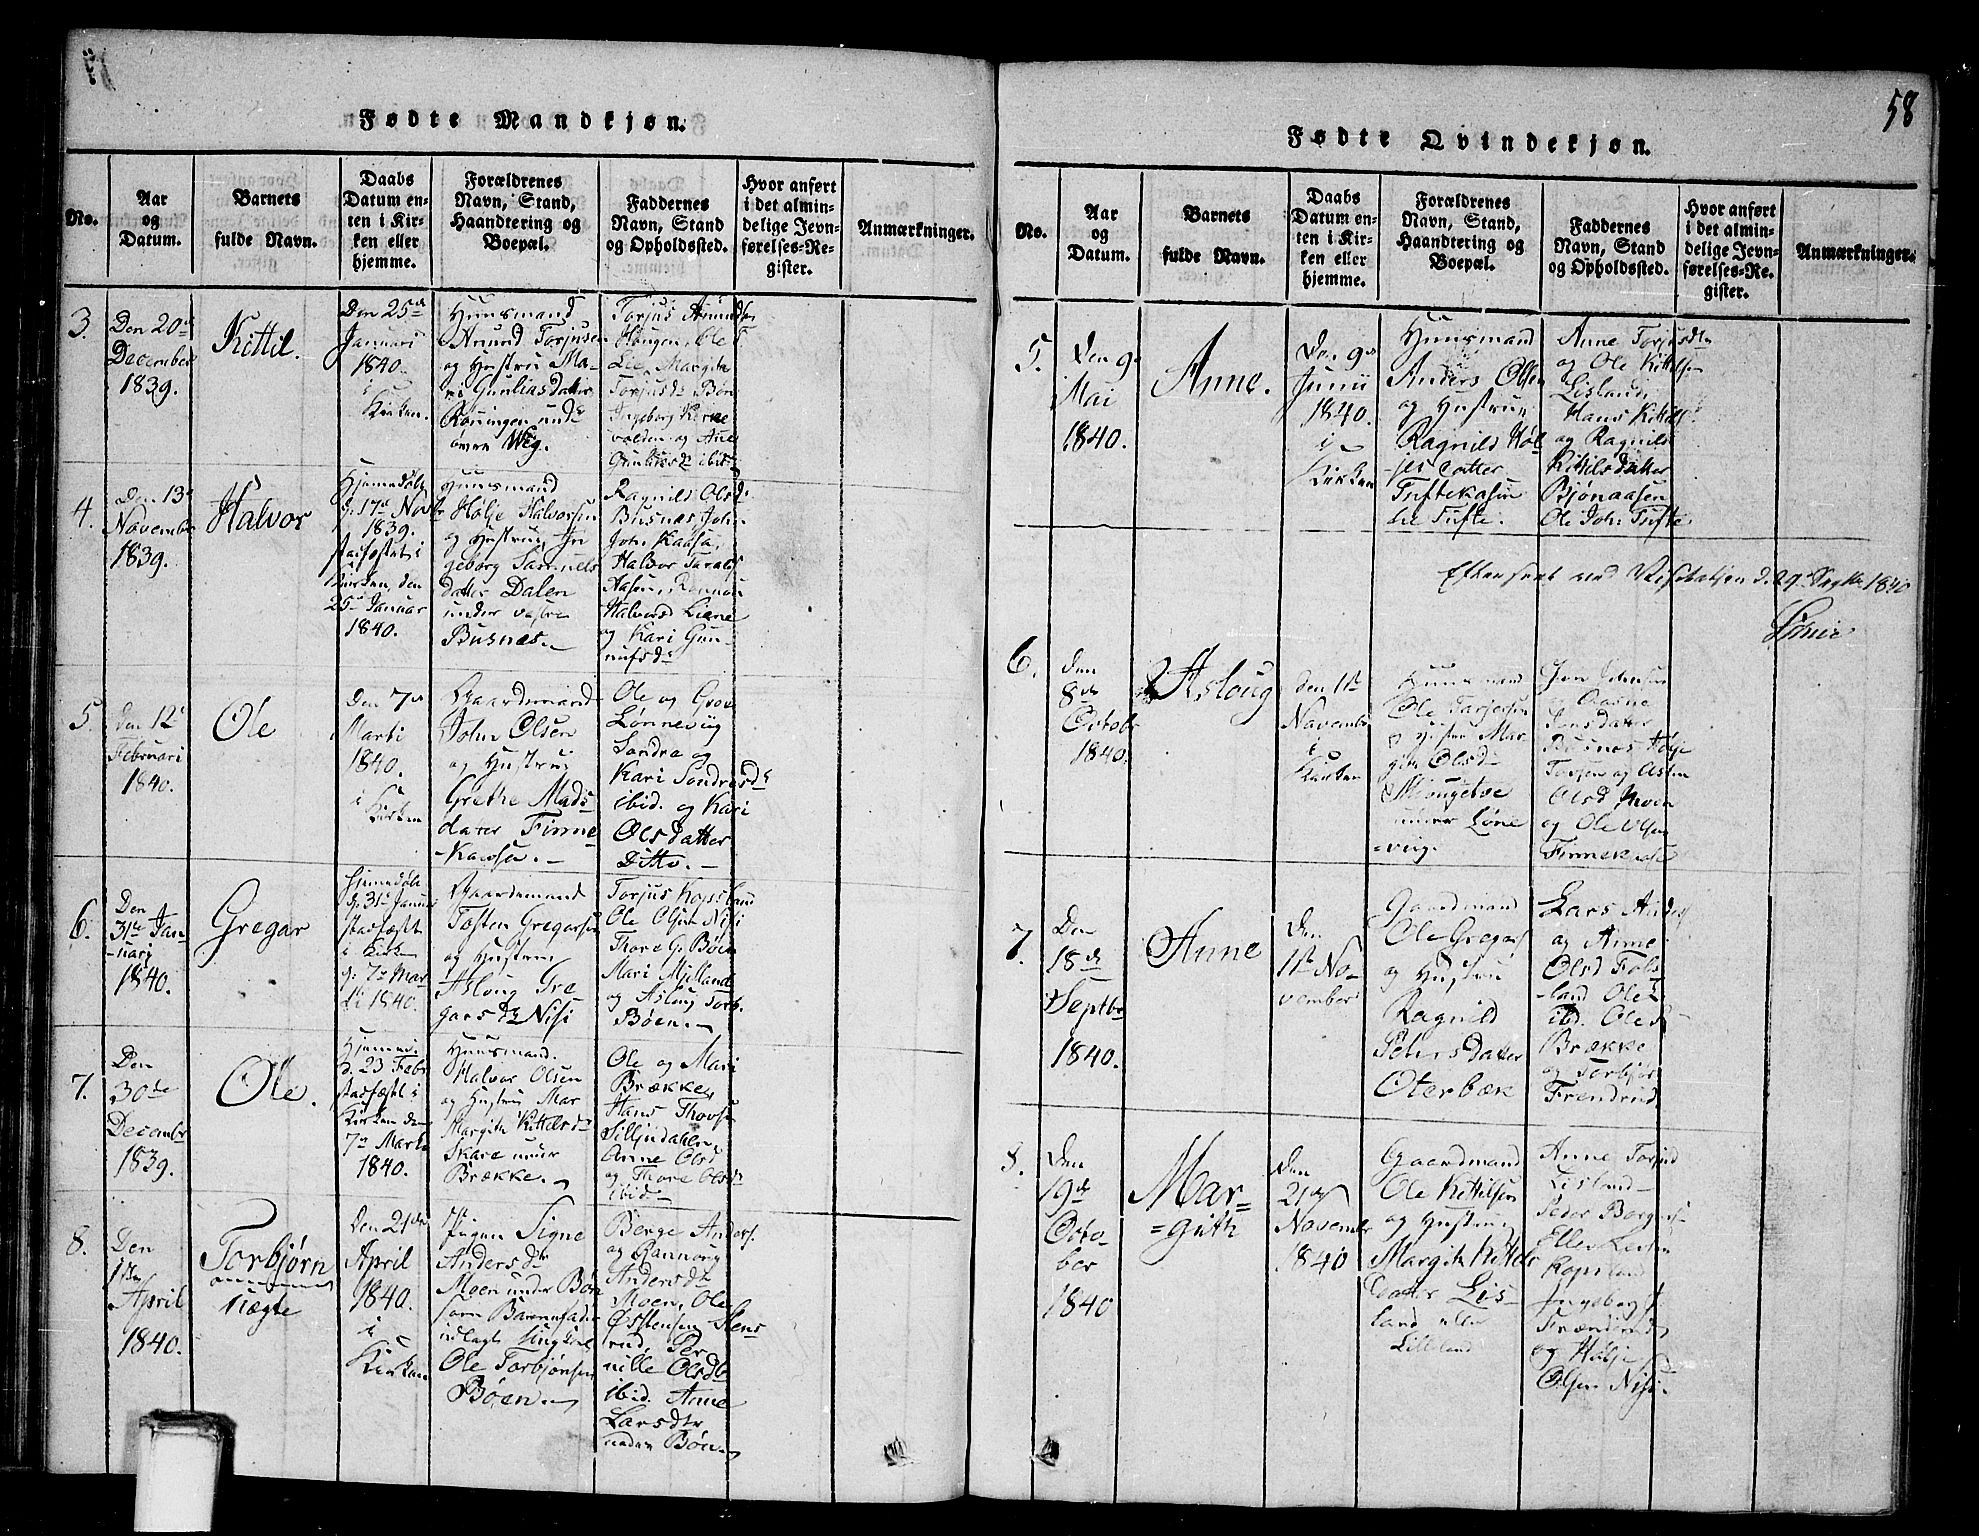 Fødte Mandkjøn.
No.
Aar
og
Datum.
Barnets
fulde Navn.
Daabs
Datum en-
ten i Kir-
ken eller
hjemme.
Forældrenes
Navn, Stand,
Haandtering og
Boepæl.
Faddernes
Navn, Stand
og Opholdssted.
Hvor anført
i det almin-
delige Jevn-
førelses-Re-
gister.
Anmærkninger.
3.
Den 20de
December
1839.
Kittil.
Den 25de
Januarii
1840.
i
Kirken.
Huusmand
Anund Torjusen
og Hustru Ma-
ri Gunliksdatter
Rønningen unde
over Weg.
Torjus Anunds
Haugen, Ole T
Lie, Margith
Torjusdr Bøn
Ingeborg Kirke
volden og Ane
Gunliksdr ibid
4.
Den 13de
November
1839.
Halvor
Hjemmedøbt
d. 17de Novbr
1839.
stadfæstet i
Kirken den
25de Januar
1840.
Huusmand
Holje Halvorsen
og Hustru In
geborg Samuels
datter Dalen
under vestre
Busnes.
Ragnild Olsd.
Busnes, John
John Kaasa,
Halvor Taralds
Aasen,
Halvorsd Liane
og Kari Gun-
nufsdr
5.
Den 12te
Februari
1840.
Ole
Den 7de
Marti
1840.
i
Kirken
Gaardmand
John Olsen
og Hustru
Grethe Mads
dater Finne
-kaasa.
Ole og Groe
Lønnevig
Sondre og
Kari Sondresdr
ibid. og Kari
Olsdatter
Ditto.
6.
Den
31te Jan-
-uarj
1840.
Gregar
Hjemmedøbt
d. 31te Januar
stadfæstet
i Kirken
d. 7de Mar-
ti 1840.
Gaardmand
Tosten Gregarsen
og Hustru
Asloug Gre
garsdr Nisi
Torjus Kopsland
Ole Olsen Nisi
Thore G. Bøen
Mari Mjelland
og Asloug Torb.
Bøen.
7.
Den
30te
December
1839.
Ole.
Hjemmed.
d. 23 Febr
stadfæstet i
Kirken den
7de Marti
1840.
Huusmand.
Halvor Olsen
og Hustru Mar
Margith Kittelsdr
Skare under
Brække.
Ole og Mari
Brække,
Hans Thovs
Silljudalen,
Anne Olsd
og Thore Olsdr
ibid
8.
Den
1ste
April
1840.
Torbjørn
uægte
Den 21de
April
1840.
i
Kirken
Pigen Signe
Andersdr
Moen under Bøen
som Barnefader
udlagt Ungkarl
Ole Torbjønsen
Bøen.
Børge Anders.
og Rannoug
Andersdr
Moen, Ole
Østensen Stens
rud, Per
nille Olsdtr
ibid. Anne
Larsdtr
neden Bøn
58
Fødte Qvindekjøn.
No.
Aar
og
Datum.
Barnets
fulde Navn.
Daabs
Datum en-
ten i Kir-
ken eller
hjemme.
Forældrenes
Navn, Stand,
Haandtering og
Boepæl.
Faddernes
Navn, Stand
og Opholdssted.
Hvor anført
i det almin-
delige Jevn-
førelses-Re-
gister.
Anmærkninger.
5.
Den 9de
Mai
1840.
Anne.
Den 9de
Junii
1840.
i
Kirken
Huusmand
Anders Olsen
og Hustru
Ragnild Høl
-jes datter
Tuftekasin
Tufte.
Anne Torjusdtr
og Ole Kittilsen
Lisland,
Hans Kittils
og Ragnild
Kittilsdatter
Bjønaasen
Ole Joh. Tufte
Efterseet ved Visitatsen d. 29de Septbr 1840
6.
Den
8de
October
1840.
Asloug
Den 1ste
November
i
Kirken
Huusmand
Ole Tarjeisen
og Hustru Mar
gith Olsd
under Løne
-vig.
Jon Johnsen
og Aasne
Jonsdater
Busnes Hølje
og Aslou
Olsd Moen
og Ole Olsen
Finnekaase
7.
Den
18de
Septbr
1840.
Anne
Den
1ste No-
vember
Gaardmand
Ole Gregars
og Hustru
Ragnild
Pehrsdatter
Oterbæk
Lars Anders
og Anne
Olsd Fols
-land Ole
ibd. Ole
Brække
og Torbjør
Frendrud
8.
Den
19de
Octo-
ber
1840
Mar=
=guth
Den
21de
November
1840
Gaardmand
Ole Kittilsen
og Hustru
Margith Kittels
Datter Lis-
land
Lilleland
Anne Torjusd
Lisland
Peder Borgers
Ellef Larsen
Kopsland
Ingeborg J
Frændrud
og Hølje
Olsen Nisi.